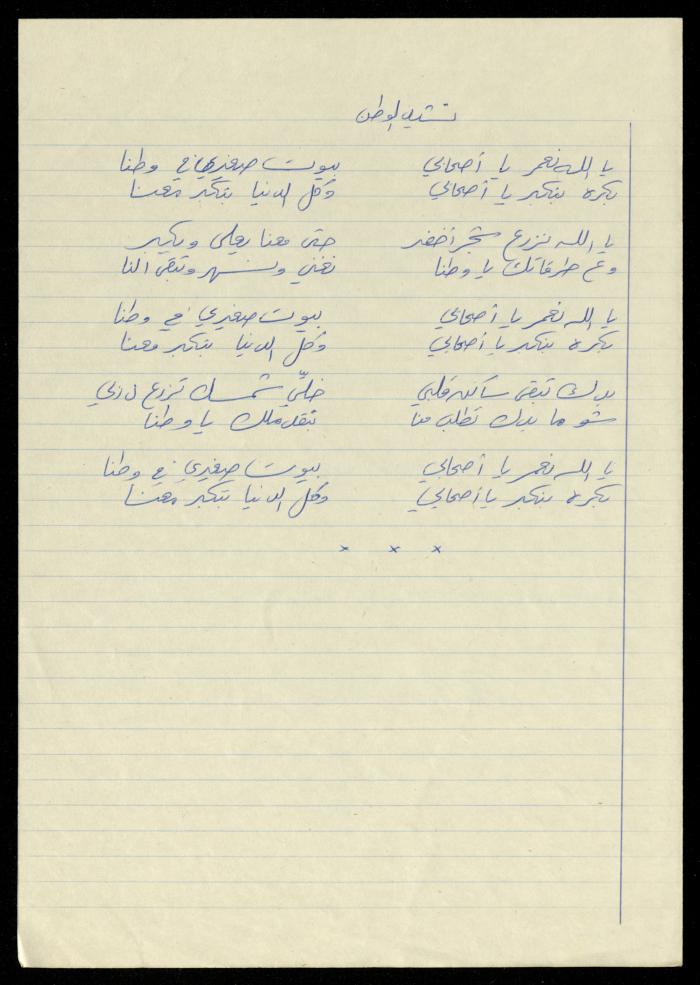 نشيد الوطن
يا الله نعمر يا أصحابي بيوت صغيري في وطنا
بكره بنكبر يا أصحابي وكل الدنيا بتكبر معنا
يا الله نزرع شجر أخضر حتى معنا يعلى ويكبر
وع طرقاتك يا وطنا نغني ونسهر وتبقى النا
يا الله نعمر يا أصحابي بيوت صغيري في وطنا
بكره بنكبر يا أصحابي وكل الدنيا بتكبر معنا
بدك تبقى ساكن قلبي خلّي شمسك تزرع
شو ما بدك تطلب منا يا وطنا
يا الله نعمر يا أصحابي بيوت صغيري في وطنا
بكره بنكبر يا أصحابي وكل الدنيا بتكبر معنا
× × ×